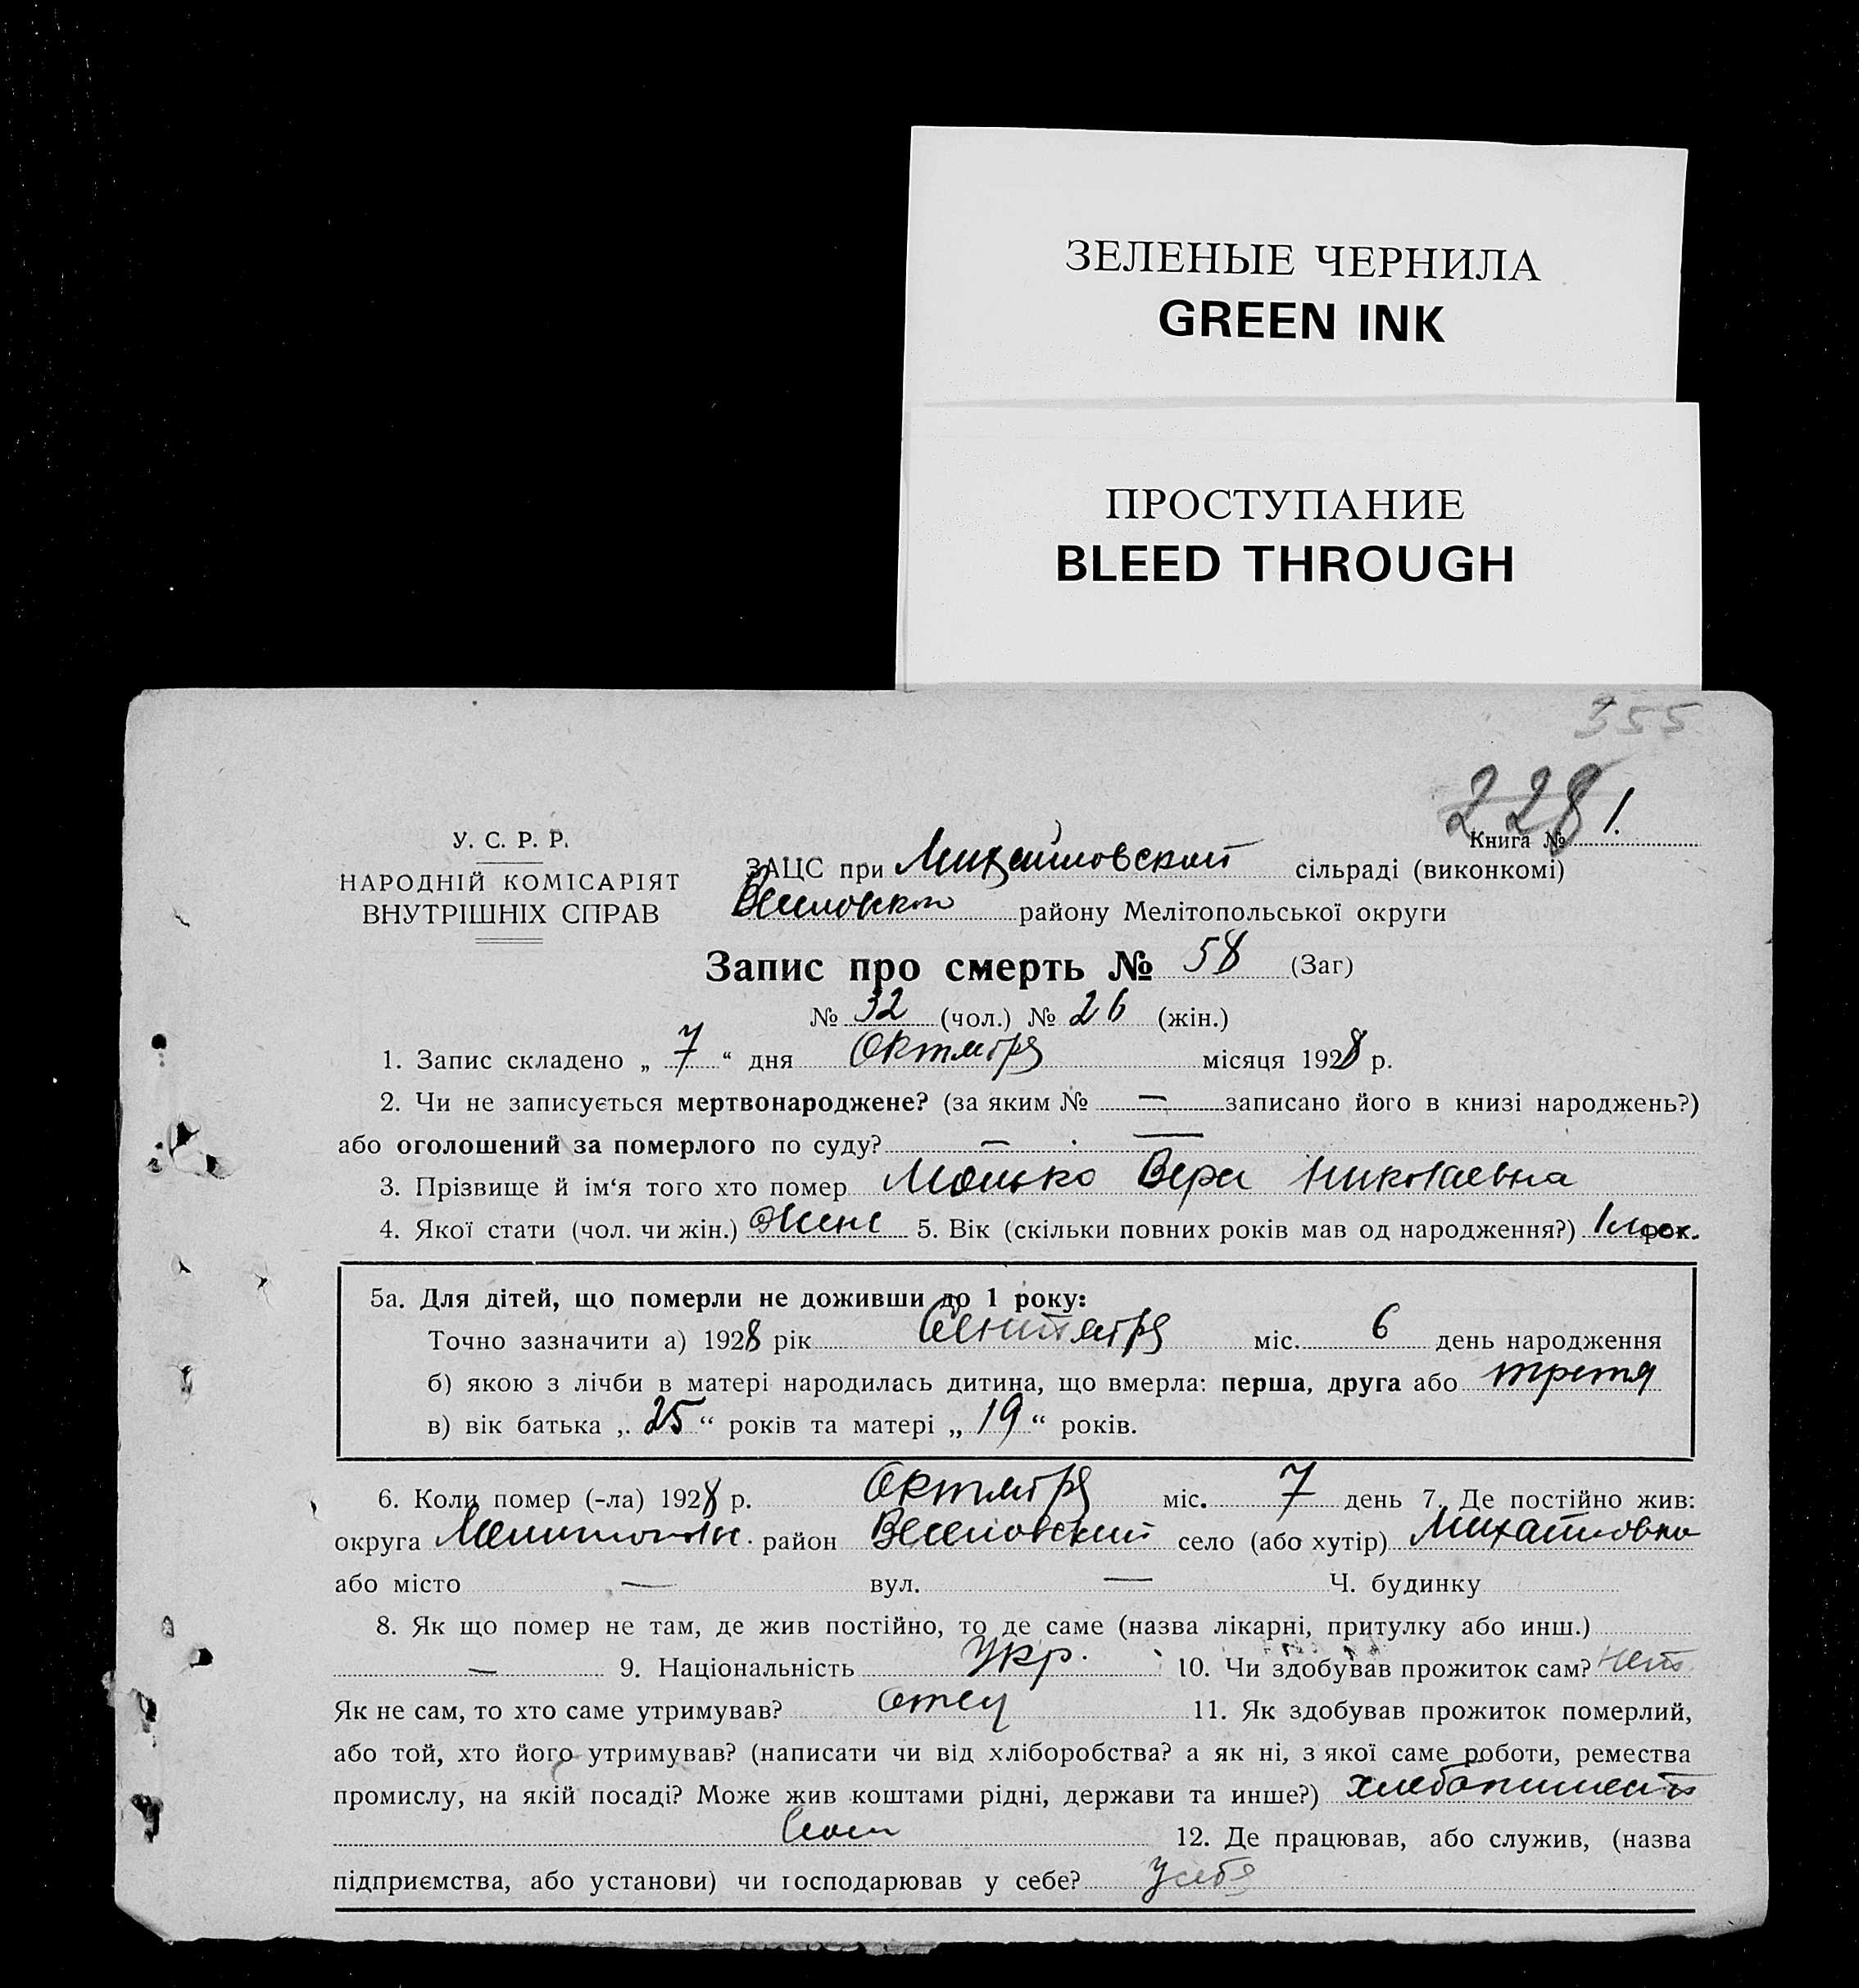 ЗЕЛЕНЫЕ ЧЕРНИЛА
GREEN INK
ПРОСТУПАНИЕ
BLEED THROUGH
355
228
Книга № 1.
У. С. Р. Р.
НАРОДНІЙ КОМІСАРІЯТ
ВНУТРІШНІХ СПРАВ
ЗАЦС при Михайловской сільраді (виконкомі)
району Мелітопольської округи
Запис про смерть № 58 (Заг)
№ 32 (чол.) № 26 (жін.)
1. Запис складено „ 7 “ дня Октября місяця 1928 р.
2. Чи не записується мертвонароджене? (за яким № — записано його в книзі народжень?)
або оголошений за померлого по суду? — —
3. Прізвище й ім‘я того хто помер Вера Николаевна
4. Якої стати (чол. чи жін.) Жене 5. Вік (скільки повних років мав од народження?) 1 мес рок.
5а. Для дітей, що померли не доживши до 1 року:
Точно зазначити а) 1928 рік Сентября міс. 6 день народження
б) якою з лічби в матері народилась дитина, що вмерла: перша, друга або третя
в) вік батька „ 25 “ років та матері „ 19 “ років.
6. Коли помер (-ла) 1928 р. Октября міс. 7 день 7. Де постійно жив:
округа район Веселовский село (або хутір) Михайловка
або місто — вул. — Ч. будинку
8. Як що помер не там, де жив постійно, то де саме (назва лікарні, притулку або инш.)
— 9. Національність Укр. 10. Чи здобував прожиток сам? нет
Як не сам, то хто саме утримував? отец 11. Як здобував прожиток померлий,
або той, хто його утримував? (написати чи від хліборобства? а як ні, з якої саме роботи, ремества
промислу, на якій посаді? Може жив коштами рідні, держави та инше?) хлебопашест
12. Де працював, або служив, (назва
підприємства, або установи) чи господарював у себе? у себя